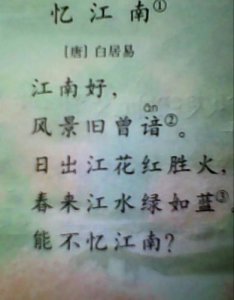 忆江南①
[唐] 白居易
江南好，
ān
风景旧曾谙②。
日出江花红胜火，
春来江水绿如蓝③，
能不忆江南？